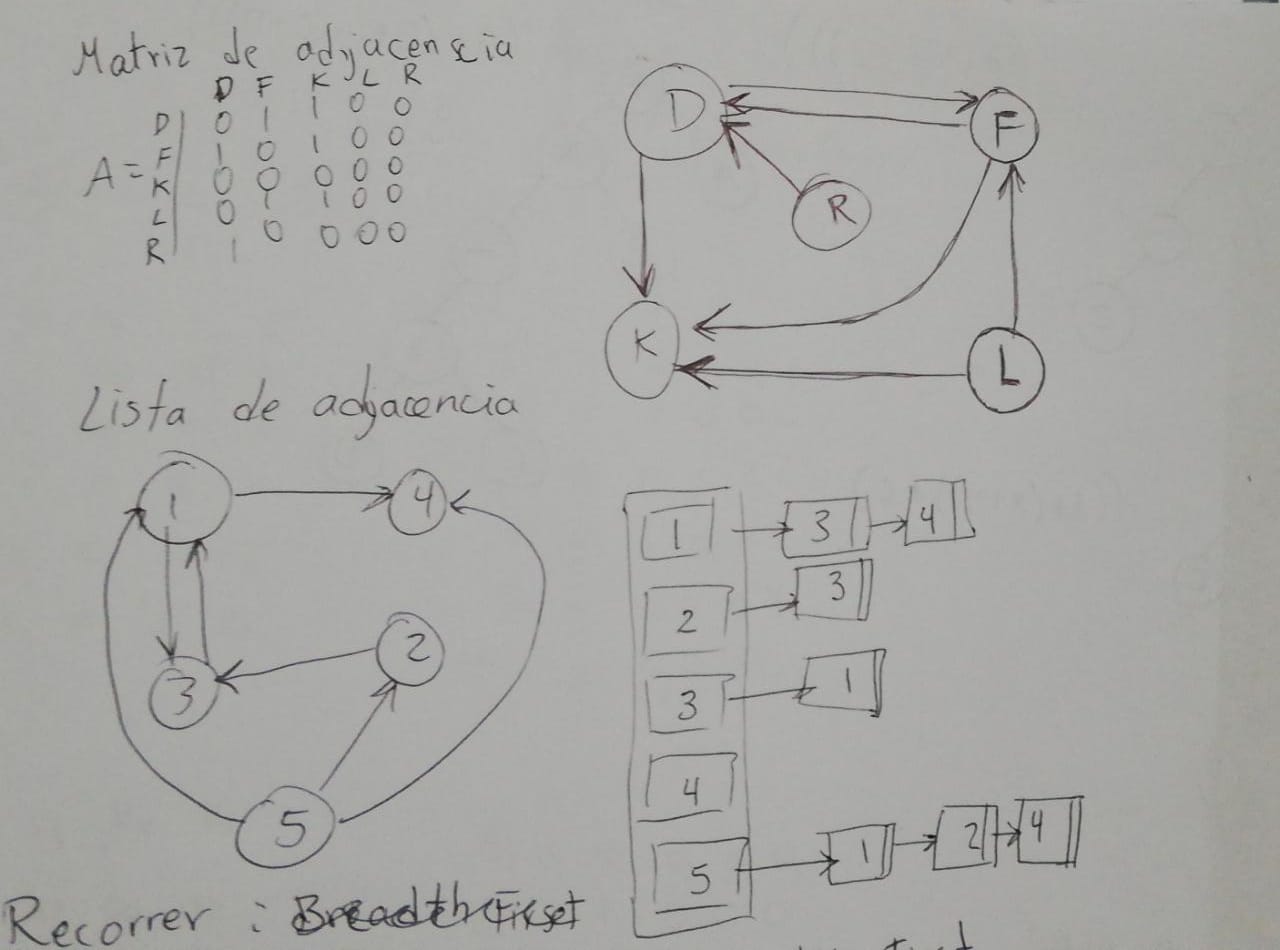 Matriz de adyacencia
D F K L R
D 0 1 1 0 0
F 1 0 1 0 0
A = K 0 0 0 0 0
L 0 1 1 0 0
R 1 0 0 0 0
D
F
R
K
L
Lista de adyacencia
1
4
3
2
5
1 3 4
2 3
3 1
4
5 1 2 4
Recorrer : Breadth First